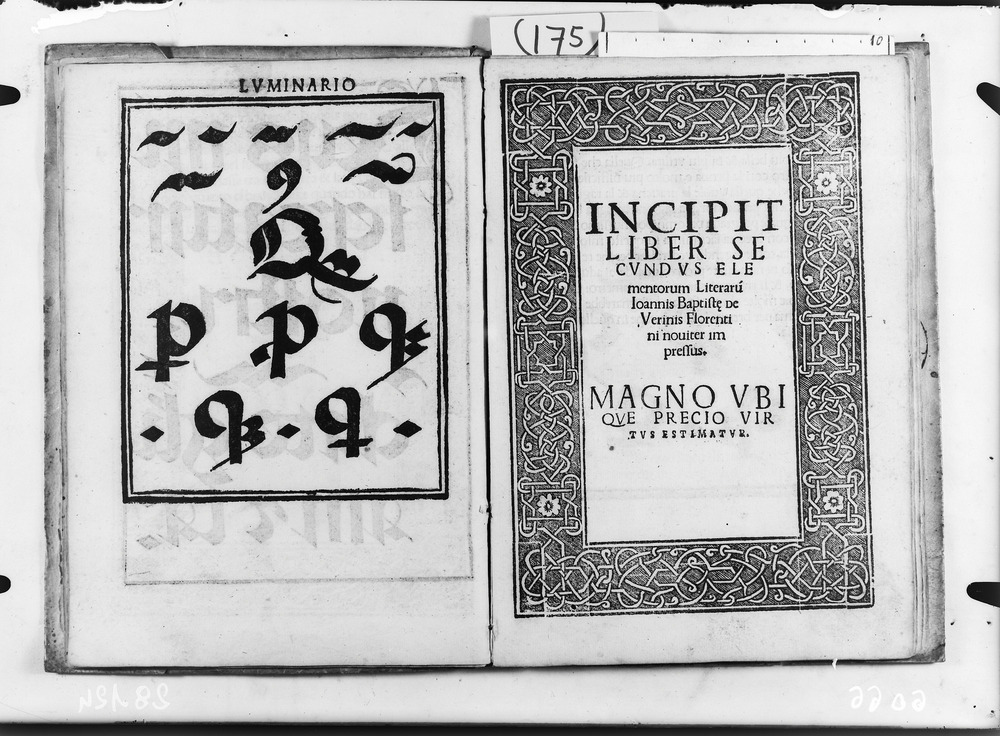 (175)
10
LVMINARIO
INCIPIT
LIBER SE
CVNDVS ELE
mentorum Literarū
Ioannis Baptistę de
Verinis Florenti
ni nouiter im
pressus.
MAGNO VBI
QVE PRECIO VIR
TVS ESTIMATVR.
28124
6066